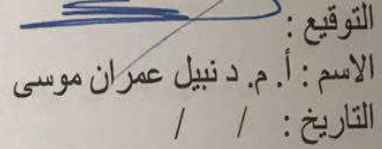 التوقيع :
الاسم : أ. م. د نبيل عمران موسى
التاريخ : / /